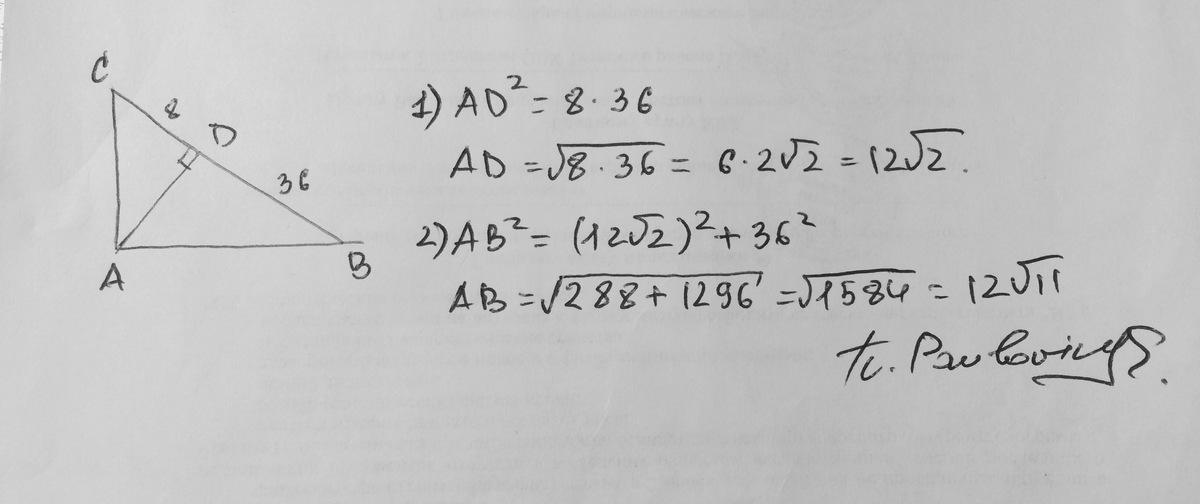 C
8
D
36
A
B
1) AD² = 8 · 36
AD = √8 · 36 = 6 · 2√2 = 12√2.
2) AB² = (12√2)² + 36²
AB = √288 + 1296 = √1584 = 12√11